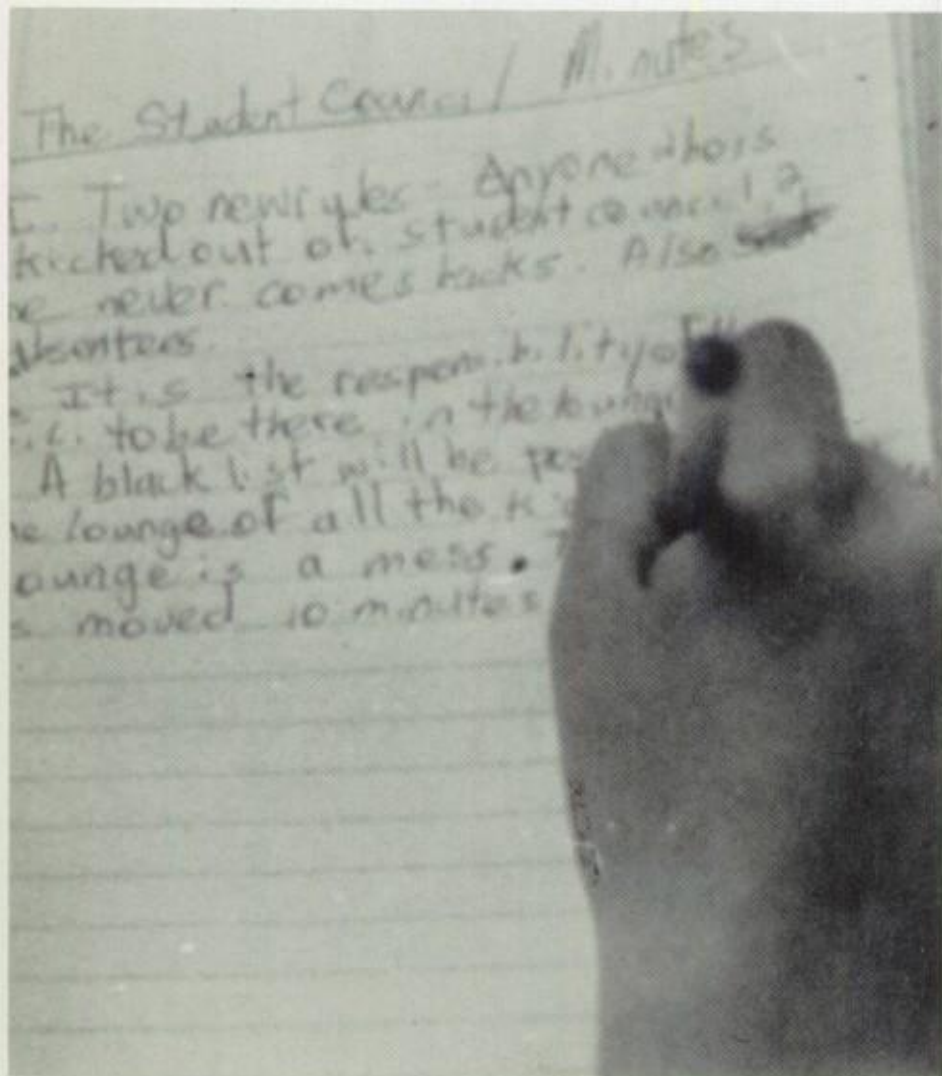 The Student Council Minutes
I. Two new rules - Anyone whos
kicked out of student council,
he never comes backs. Also
absentees.
It is the responsibility of
to be there in the lounge
A black list will be
lounge of all the
lounge is a mess.
moved 10 minutes